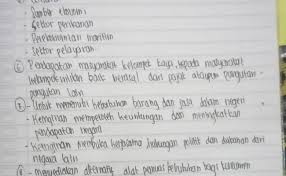 - Sumber ekonomi
- Sektor perikanan
- Pertambangan maritim
- Sektor pelayaran
⑥ Pendapatan masyarakat kelompok kaya kepada masyarakat
ini baik berasal dari pajak ataupun pungutan-
pungutan lain
⑦ - Untuk memenuhi kebutuhan barang dan jasa dalam negeri
- Keinginan memperoleh keuntungan dan meningkatkan
pendapatan negara
- Keinginan membuka kerjasama hubungan politik dan dukungan dari
negara lain
⑧ - menyediakan alternatif alat pemuas kebutuhan bagi konsumen